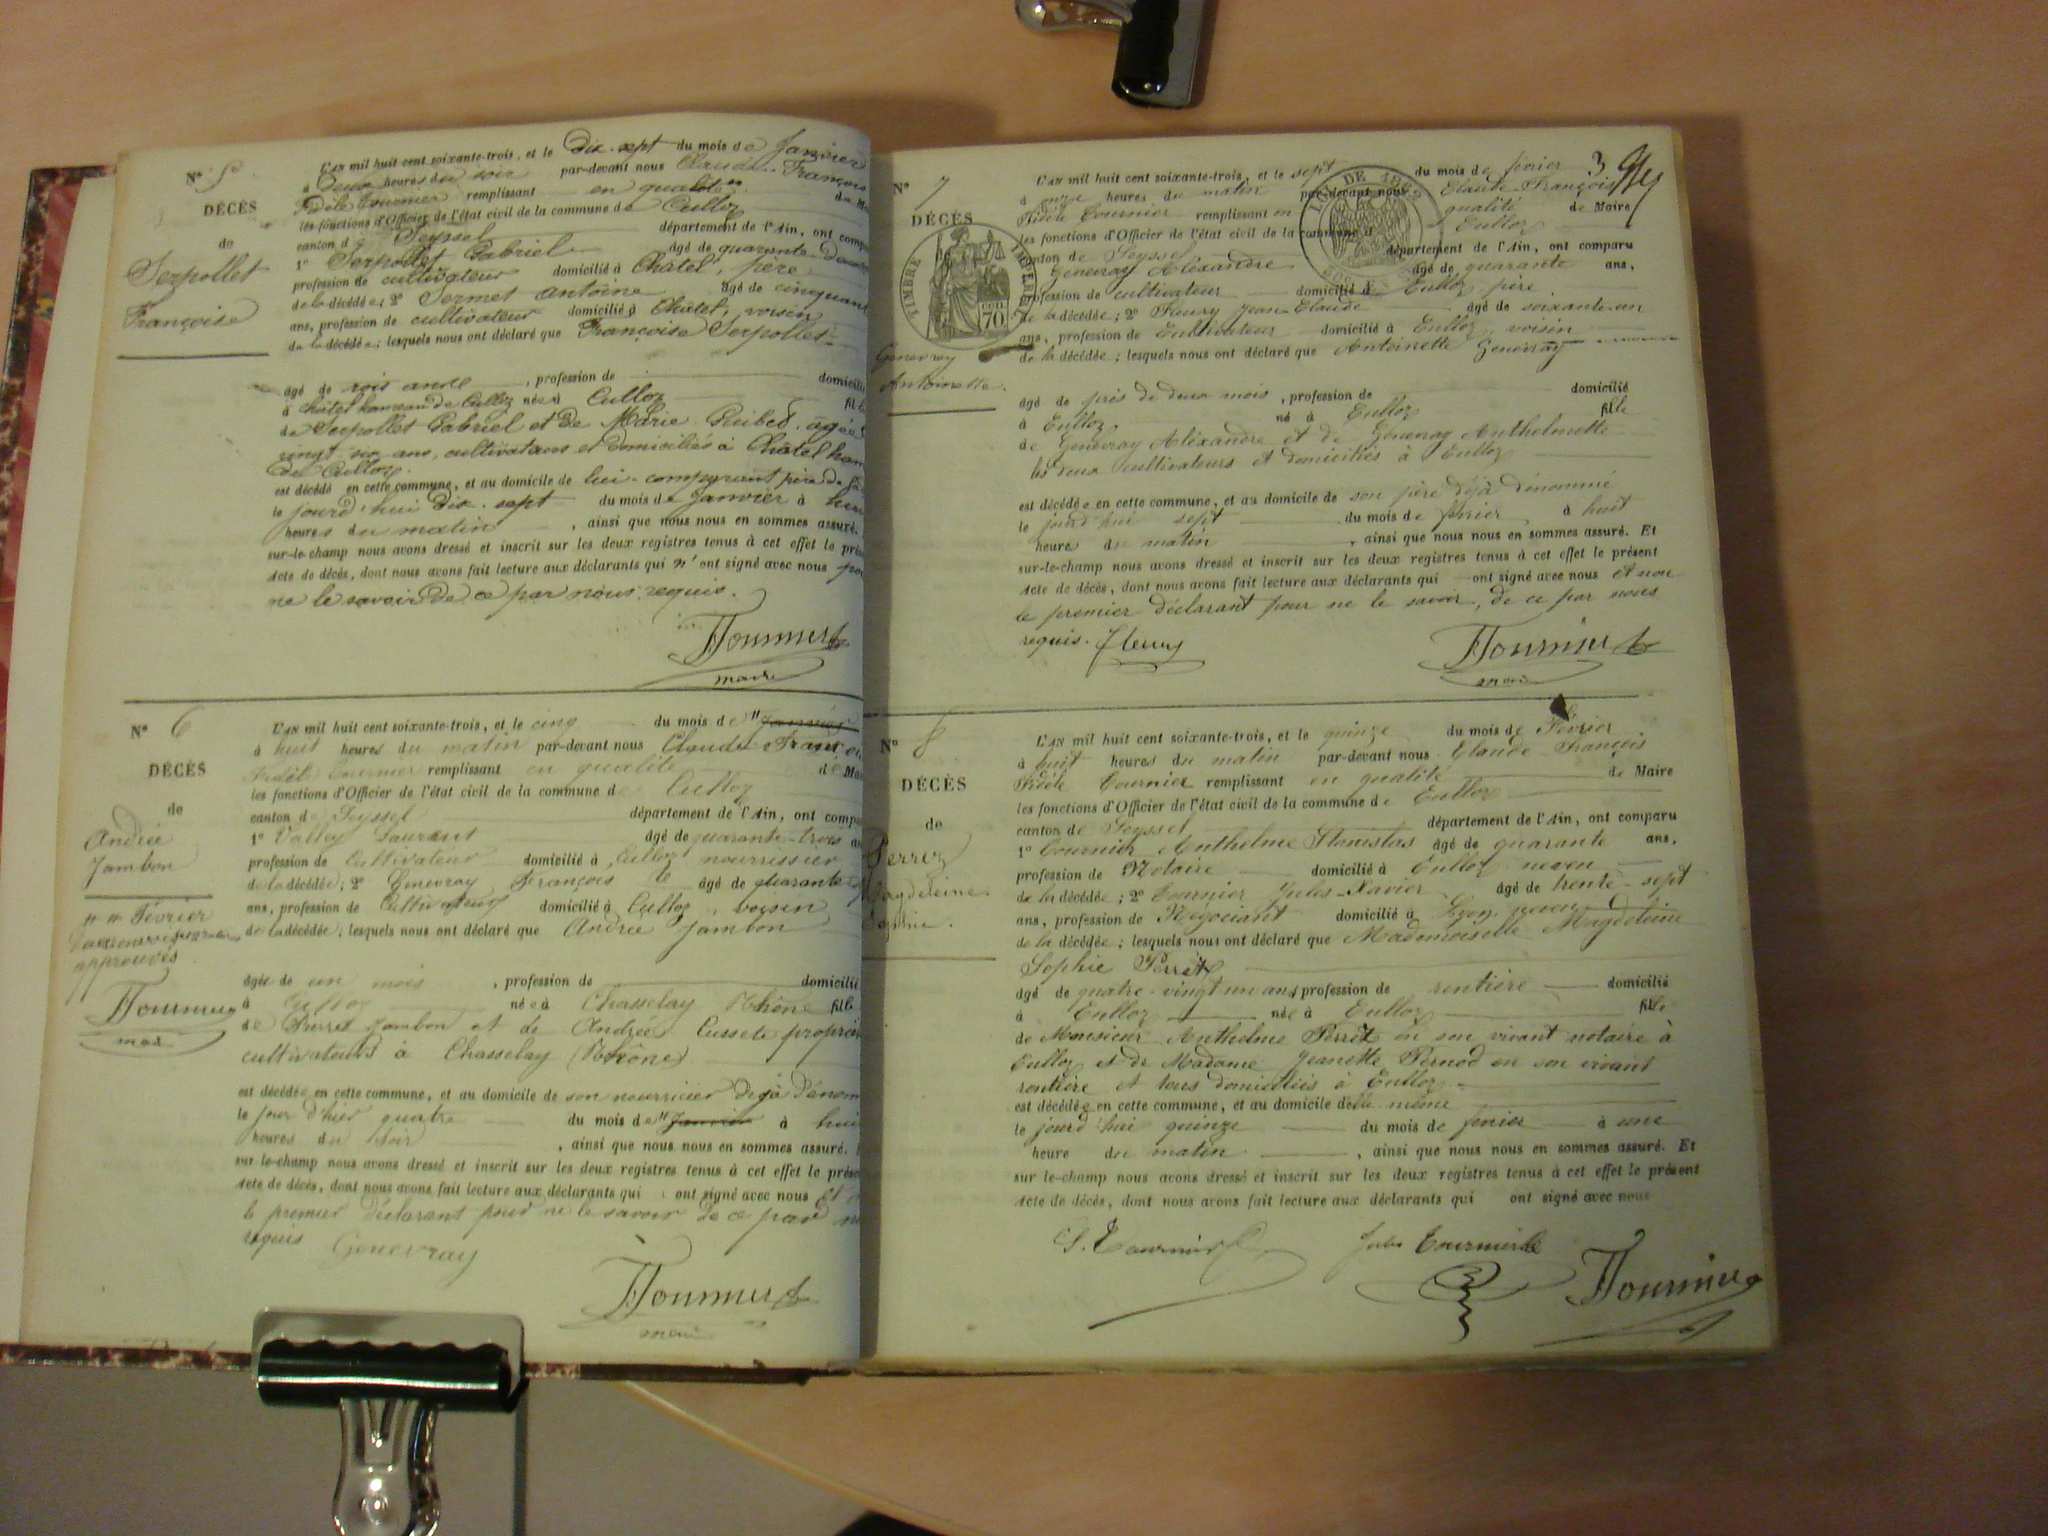 N° 5
DÉCÈS
de
Serpollet
Françoise
L'AN mil huit cent soixante-trois, et le dix-sept du mois de Janvier
à Deux heures du soir par-devant nous Claude-François
Fidèle Tournier remplissant en qualité de
les fonctions d'Officier de l'état civil de la commune de Culloz
canton de Seyssel département de l'Ain, ont
1° Serpollet Gabriel âgé de quarante
profession de cultivateur domicilié à Châtel, père
de la décédée; 2° Sermet Antoine âgé de
ans, profession de cultivateur domicilié à Châtel, voisin
de la décédée; lesquels nous ont déclaré que Françoise Serpollet
âgé de , profession de
à Châtel hameau de Culloz née à Culloz
de Serpollet Gabriel et de Marie
vingt six ans, cultivateurs et domiciliés à Châtel
de Culloz.
est décédé en cette commune, et au domicile de lui-comparant père de
le jourd'hui dix-sept du mois de Janvier à
heures du matin , ainsi que nous nous en sommes assuré.
sur-le-champ nous avons dressé et inscrit sur les deux registres tenus à cet effet le
acte de décès, dont nous avons fait lecture aux déclarants qui n'ont signé avec nous
ne le savoir de ce par nous requis.
FTournier
maire
N° 6
DÉCÈS
de
Andrée
Jambon
" " Février
approuvés
FTournier
L'AN mil huit cent soixante-trois, et le cinq du mois de " Janvier
à huit heures du matin par-devant nous Claude
Fidèle Tournier remplissant en qualité de
les fonctions d'Officier de l'état civil de la commune de Culloz
canton de Seyssel département de l'Ain, ont
1° Laurent âgé de quarante-trois
profession de Cultivateur domicilié à Culloz nourrissier
de la décédée; 2° Genevray François âgé de quarante
ans, profession de Cultivateur domicilié à Culloz, voisin
de la décédée; lesquels nous ont déclaré que Andrée Jambon
âgée de un mois , profession de domicilié
à Culloz née à Chasselay Rhône fille
de Jambon et de Andrée
cultivateurs à Chasselay (Rhône)
est décédée en cette commune, et au domicile de son nourricier déjà
le jour d'hier quatre du mois de " Janvier à
heures du soir , ainsi que nous nous en sommes assuré.
sur-le-champ nous avons dressé et inscrit sur les deux registres tenus à cet effet le
acte de décès, dont nous avons fait lecture aux déclarants qui ont signé avec nous
le premier déclarant pour ne le savoir de ce par
requis Genevray
FTournier
maire
3
N° 7
DÉCÈS
TIMBRE IMPERIAL
70
LOI DE 1862
Genevray
Antoinette.
L'AN mil huit cent soixante-trois, et le sept du mois de février
à onze heures du matin par-devant nous Claude-François
Fidèle Tournier remplissant en qualité de Maire
les fonctions d'Officier de l'état civil de la commune d Culloz
canton de Seyssel département de l'Ain, ont comparu
Genevray Aléxandre âgé de quarante ans,
profession de cultivateur domicilié à Culloz père
de la décédée; 2° Fleury Jean-Claude âgé de soixante-un
ans, profession de Cultivateur domicilié à Culloz, voisin
de la décédée; lesquels nous ont déclaré que Antoinette Genevray
âgé de près de deux mois , profession de domicilié
à Culloz né à Culloz fille
de Genevray Aléxandre et de Genevray Anthelmette
les deux cultivateurs et domiciliés à Culloz
est décédée en cette commune, et au domicile de son père déjà dénommé
le jourd'hui sept du mois de février à huit
heure du matin , ainsi que nous nous en sommes assuré. Et
sur-le-champ nous avons dressé et inscrit sur les deux registres tenus à cet effet le présent
acte de décès, dont nous avons fait lecture aux déclarants qui ont signé avec nous et non
le premier déclarant pour ne le savoir, de ce par nous
requis. Fleury
FTournier
maire
N° 8
DÉCÈS
de
Perret
Magdeleine
Sophie.
L'AN mil huit cent soixante-trois, et le quinze du mois de Février
à huit heures du matin par-devant nous Claude François
Fidèle Tournier remplissant en qualité de Maire
les fonctions d'Officier de l'état civil de la commune de Culloz
canton de Seyssel département de l'Ain, ont comparu
1° Tournier Anthelme Stanislas âgé de quarante ans,
profession de Notaire domicilié à Culloz neveu
de la décédée; 2° Tournier Jules-Xavier âgé de trente-sept
ans, profession de Négociant domicilié à Lyon neveu
de la décédée; lesquels nous ont déclaré que Mademoiselle Magdeleine
Sophie Perret
âgé de quatre-vingt un ans, profession de rentière domicilié
à Culloz née à Culloz fille
de Monsieur Anthelme Perret en son vivant notaire à
Culloz et de Madame Jeanette Pernod en son vivant
rentière et tous domiciliés à Culloz
est décédée en cette commune, et au domicile d'elle même
le jourd'hui quinze du mois de février à une
heure du matin , ainsi que nous nous en sommes assuré. Et
sur-le-champ nous avons dressé et inscrit sur les deux registres tenus à cet effet le présent
acte de décès, dont nous avons fait lecture aux déclarants qui ont signé avec nous
S. Tournier Jules Tournier
FTournier